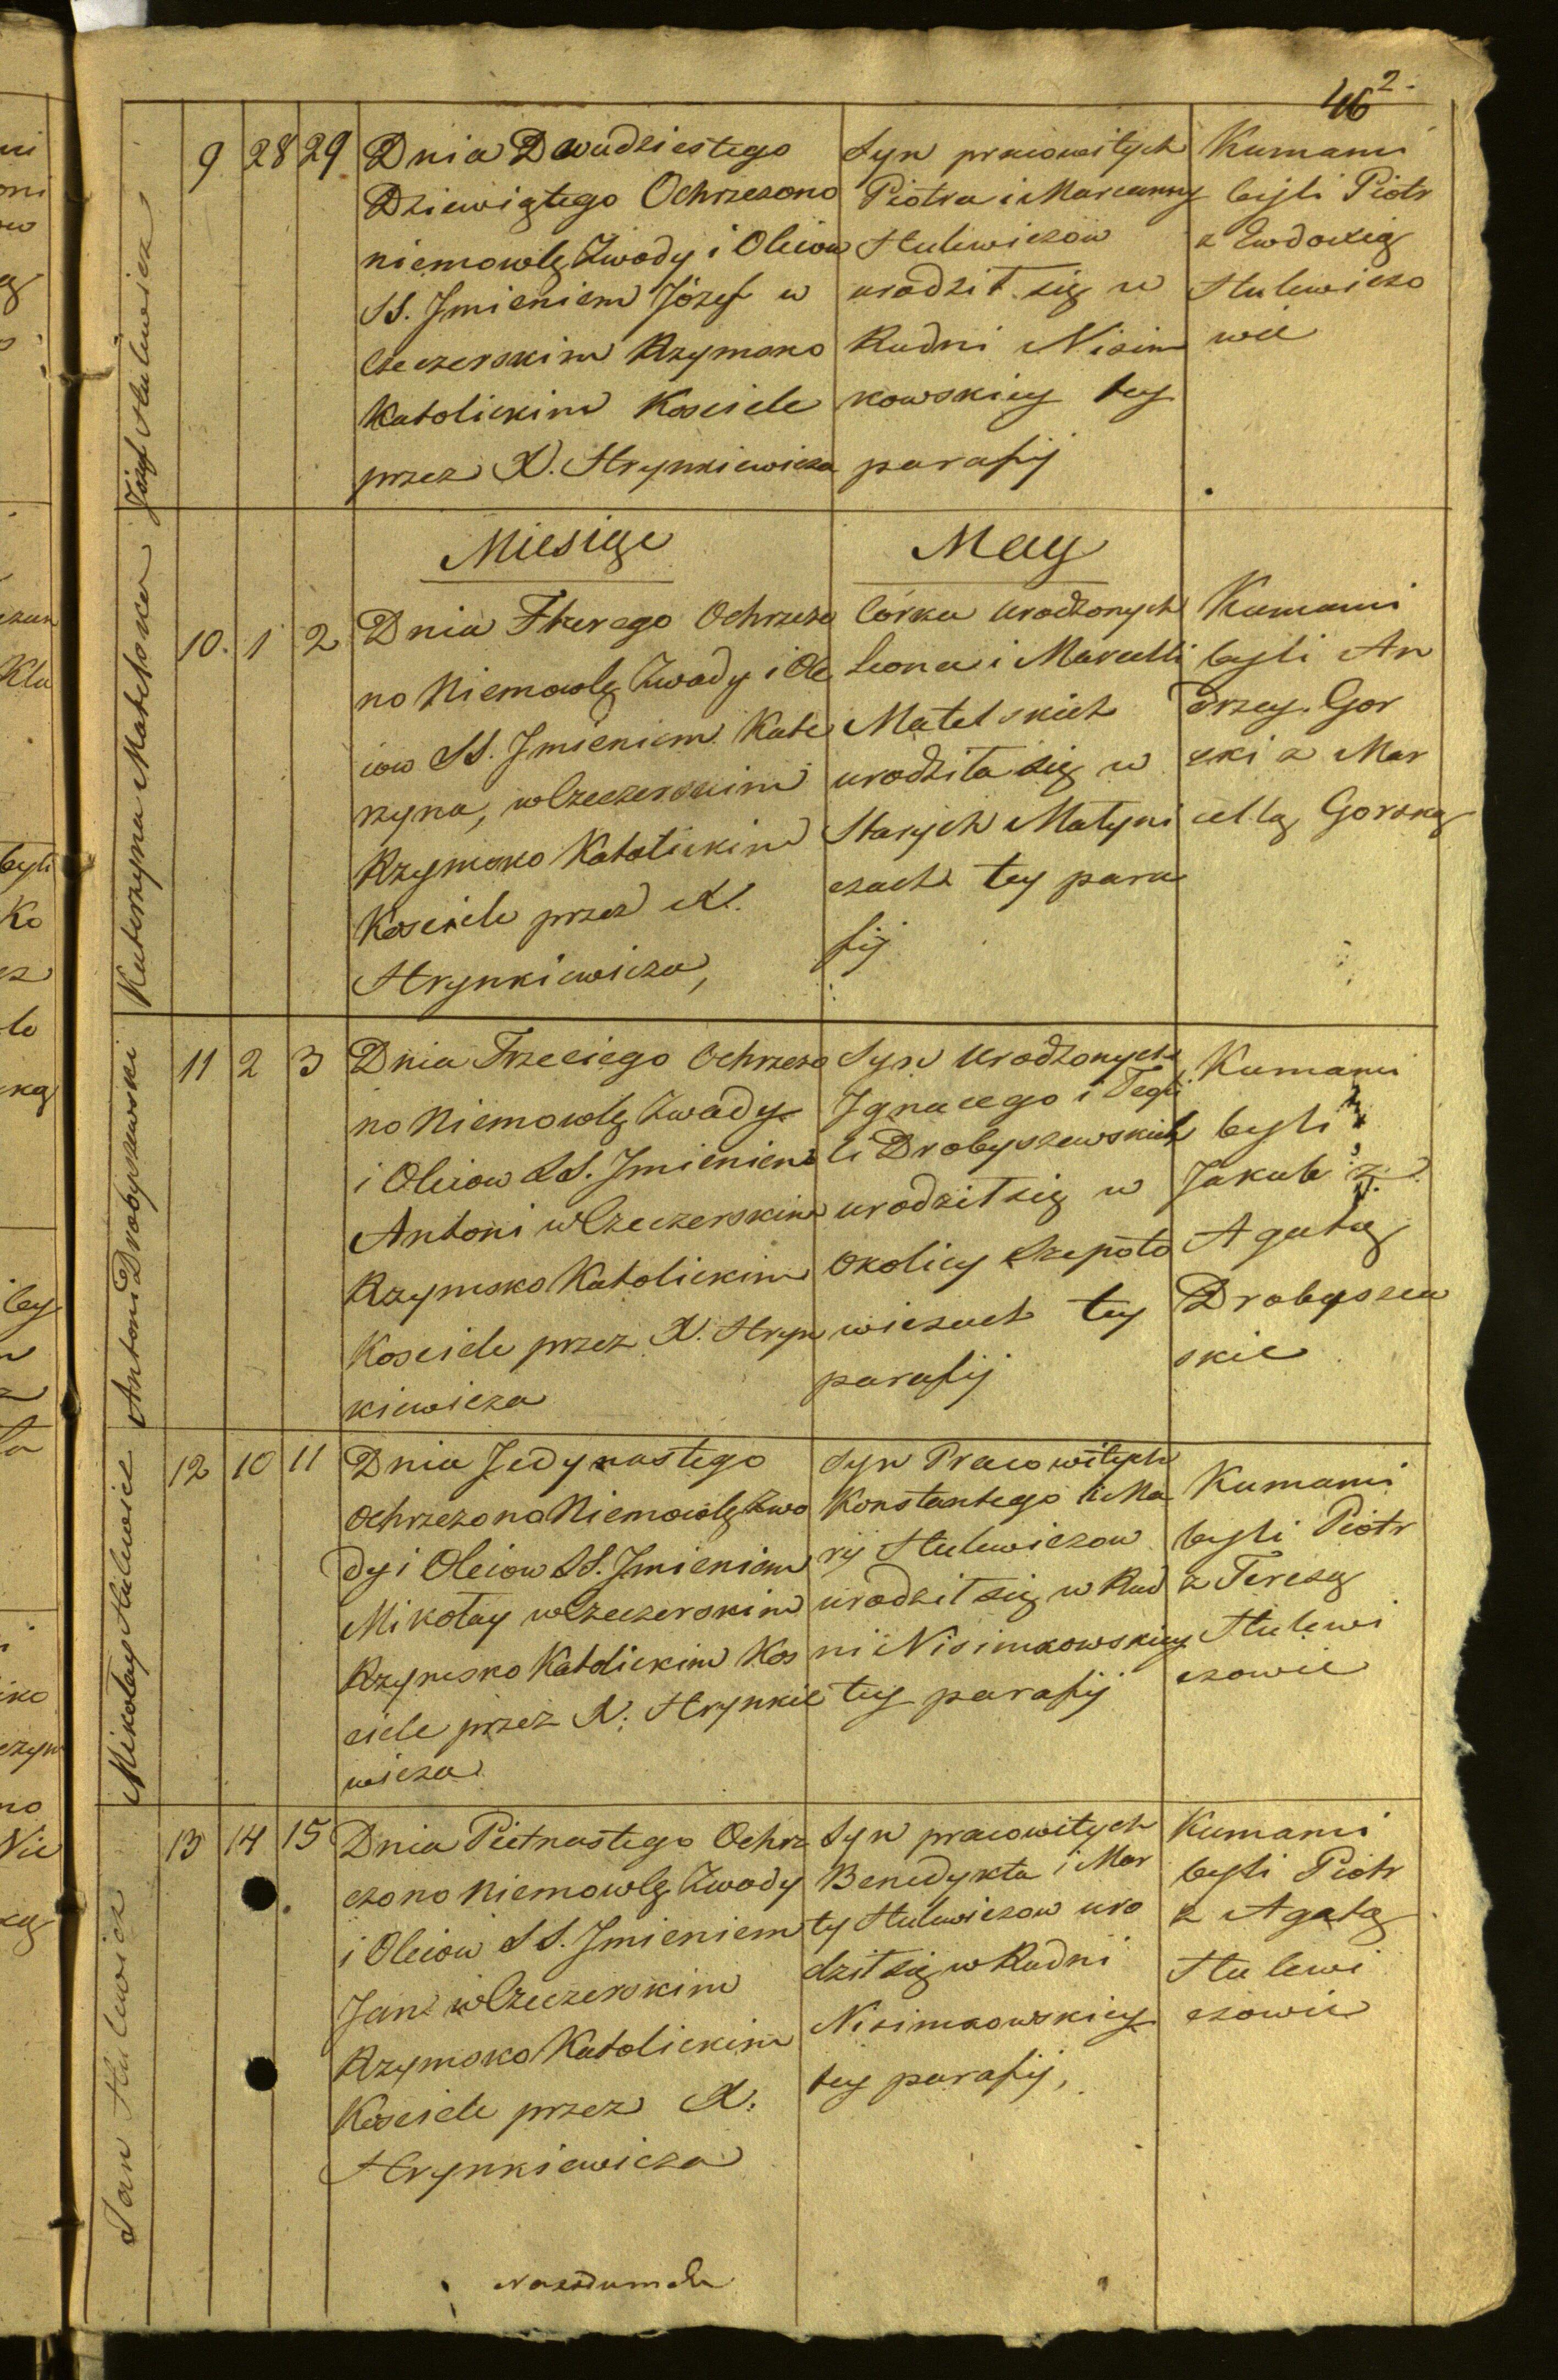 46 2
Józef Hulewicz
9 28 29
Dnia Dwudziestego
Dziewiątego Ochrzczono
niemowlę Zwody i Oleiow
SS. Jmieniem Józef w
Czeczerskim Rzymsko
Katolickim Kosciele
przez X. Hrynkiewicza
Syn pracowitych
Piotra i Maryanny
Hulewiczow
urodził się w
Rudni Nisim
kowskiey tey
parafij
Kumami
byli Piotr
z Ewdoxią
Hulewiczo
wie
Miesiąc May
Katarzyna Matelska
10. 1 2
Dnia Wtorego Ochrzczo
no Niemowlę Zwody i Ole
iow SS. Jmieniem Kate
rzyna, w Czeczerskim
Rzymsko Katolickim
Kosciele przez X.
Hrynkiewicza,
Córka urodzonych
Leona i Marcelli
Matelskich
urodziła się w
Starych Matyni
czach tey para
fij
Kumami
byli An
drzey Gor
ski z Mar
cellą Gorską
Antoni Drobyszewski
11 2 3
Dnia Trzeciego Ochrzczo
no Niemowlę Zwody
i Oleiow SS. Jmieniem
Antoni w Czeczerskim
Rzymsko Katolickim
Kosciele przez X. Hryn
kiewicza
Syn Urodzonych
Jgnacego i Tekli
Drobyszewskich
urodził się w
Okolicy Szepoto
wiczach tey
parafij
Kumami
byli
Jakub z
Agatą
Drobyszew
skie
Mikołay Hulewicz
12 10 11
Dnia Jedynastego
Ochrzczono Niemowlę Zwo
dy i Oleiow SS. Jmieniem
Mikołay w Czeczerskim
Rzymsko Katolickim Kos
ciele przez X. Hrynkie
wicza
Syn Pracowitych
Konstantego i Ma
rij Hulewiczow
urodził się w Rud
ni Nisimkowskiey
tey parafij
Kumami
byli Piotr
z Teresą
Hulewi
czowie
Jan Hulewicz
13 14 15
Dnia Pietnastego Ochrz
czono niemowlę Zwody
i Oleiow SS. Jmieniem
Jan w Czeczerskim
Rzymsko Katolickim
Kosciele przez X.
Hrynkiewicza
Syn pracowitych
Benedykta i Mar
ty Hulewiczow uro
dził się w Rudni
Nisimkowskiey
tey parafij,
Kumami
byli Piotr
z Agatą
Hulewi
czowie